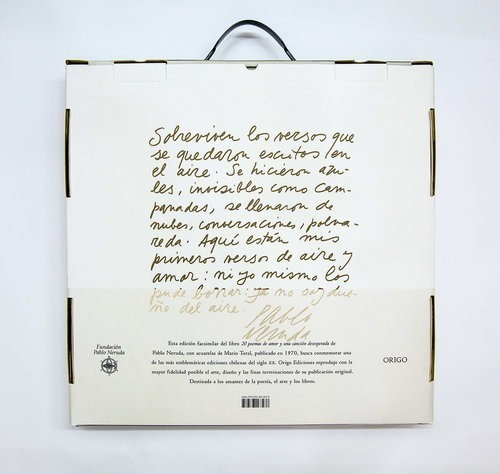 Sobreviven los versos que
se quedaron escritos en
el aire. Se hicieron azu-
les, invisibles como cam-
panadas, se llenaron de
nubes, conversaciones, polva-
reda. Aquí están mis
primeros versos de aire y
amor: ni yo mismo los
pude borrar: ya no soy due-
ño del aire.
Pablo
Neruda
Esta edición facsimilar del libro 20 poemas de amor y una canción desesperada de
Pablo Neruda, con acuarelas de Mario Toral, publicado en 1970, busca conmemorar una
de las más emblemáticas ediciones chilenas del siglo XX. Origo Ediciones reprodujo con la
mayor fidelidad posible el arte, diseño y las finas terminaciones de su publicación original.
Destinada a los amantes de la poesía, el arte y los libros.
Fundación
Pablo Neruda
ORIGO